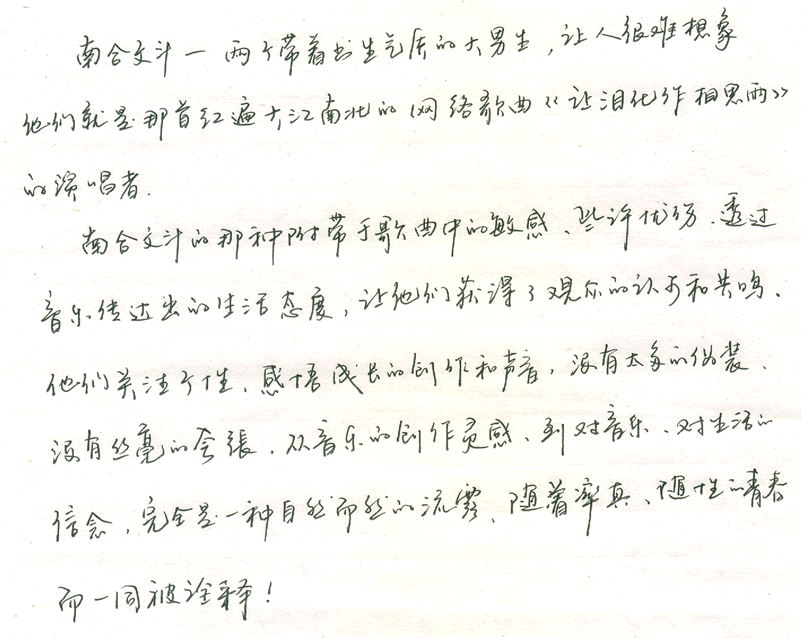 南合文斗一两个带着书生气质的大男生，让人很难想象
他们就是那首红遍大江南北的网络歌曲《让泪化作相思雨》
的演唱者.
南合文斗的那种附带于歌曲中的敏感、些许忧伤、透过
音乐传达出的生活态度，让他们获得了观众的认可和共鸣.
他们关注个性、感悟成长的创作和声音，没有太多的伪装、
没有丝毫的夸张.从音乐的创作灵感、到对音乐、对生活的
信念，完全是一种自然而然的流露、随着率真、随性的青春
而一同被诠释！